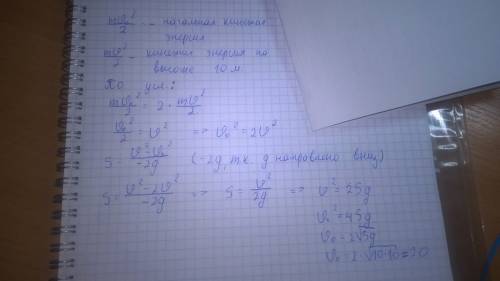 mv₀²/2 - начальная кинетич. энергия
mv²/2 - кинетич. энергия на
высоте 10 м.
По усл.:
mv₀²/2 = 2 · mv²/2
v₀²/2 = v² => v₀² = 2v²
S = (v² - v₀²)/-2g (-2g, т.к. g направлено вниз)
S = (v² - 2v²)/-2g => S = v²/2g => v² = 2Sg
v₀² = 4Sg
v₀ = 2√Sg
v₀ = 2 · √10·10 = 20